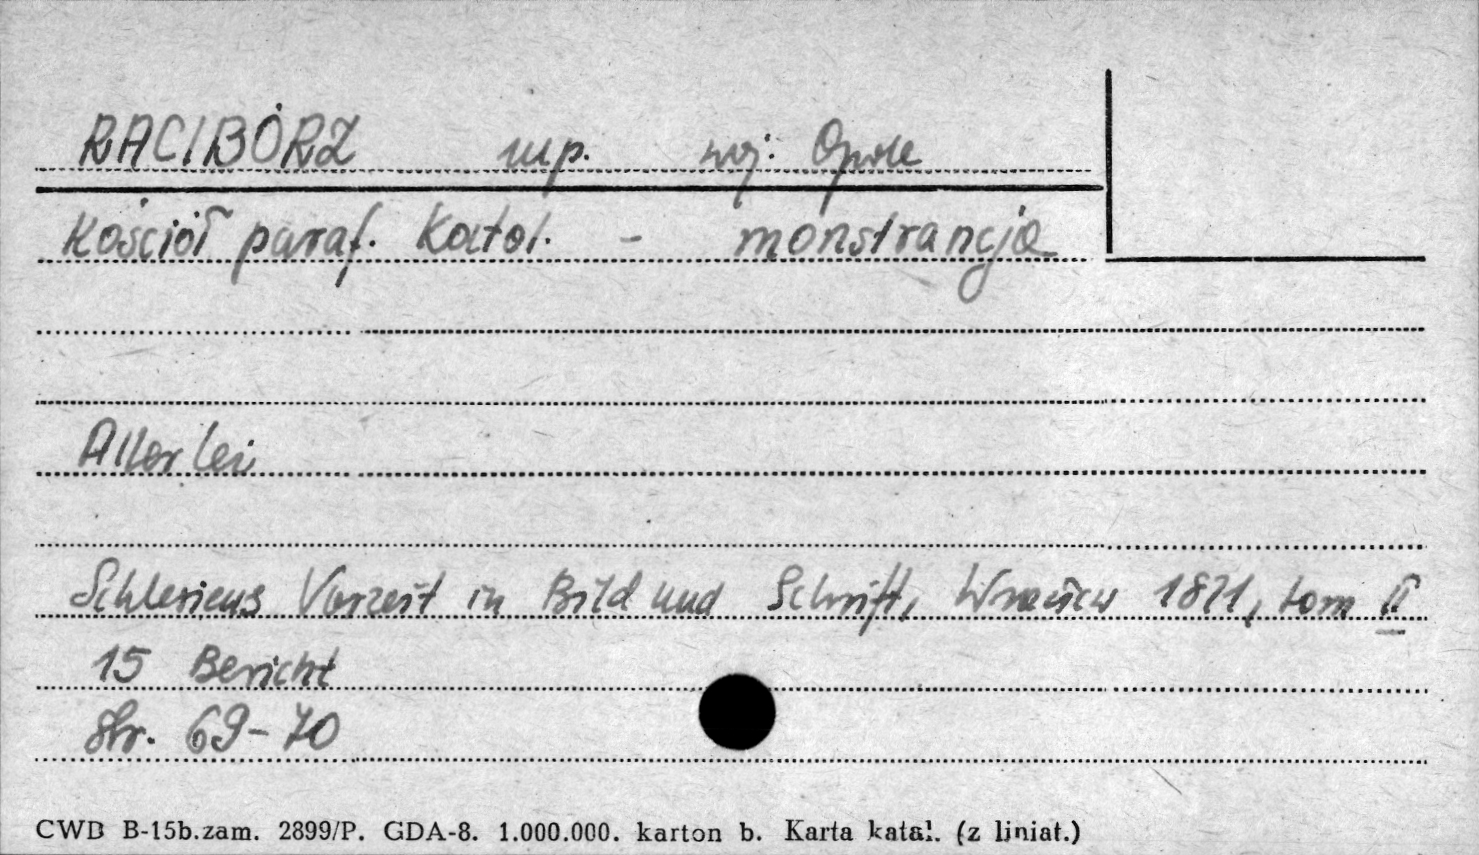 RACIBÓRZ mp. woj. Opole
Kościół paraf. Katol. - monstrancja
Allerlei
Schlesiens Vorzeit in Bild und Schrift, Wrocław 1871, tom II
15 Bericht
str. 69-70
CWD B-15b.zam. 2899/P. GDA-8. 1.000.000. karton b. Karta katal. (z liniat.)